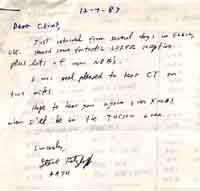 12-7-87
Dear Clint,
Just returned from several days in
Heard some fantastic reception.
plus lots of new NDB's.
I was real pleased to hear CT on
two nites.
Hope to hear you again over Xmas
when I'll be in the Tucson area.
Sincerely,
Steve